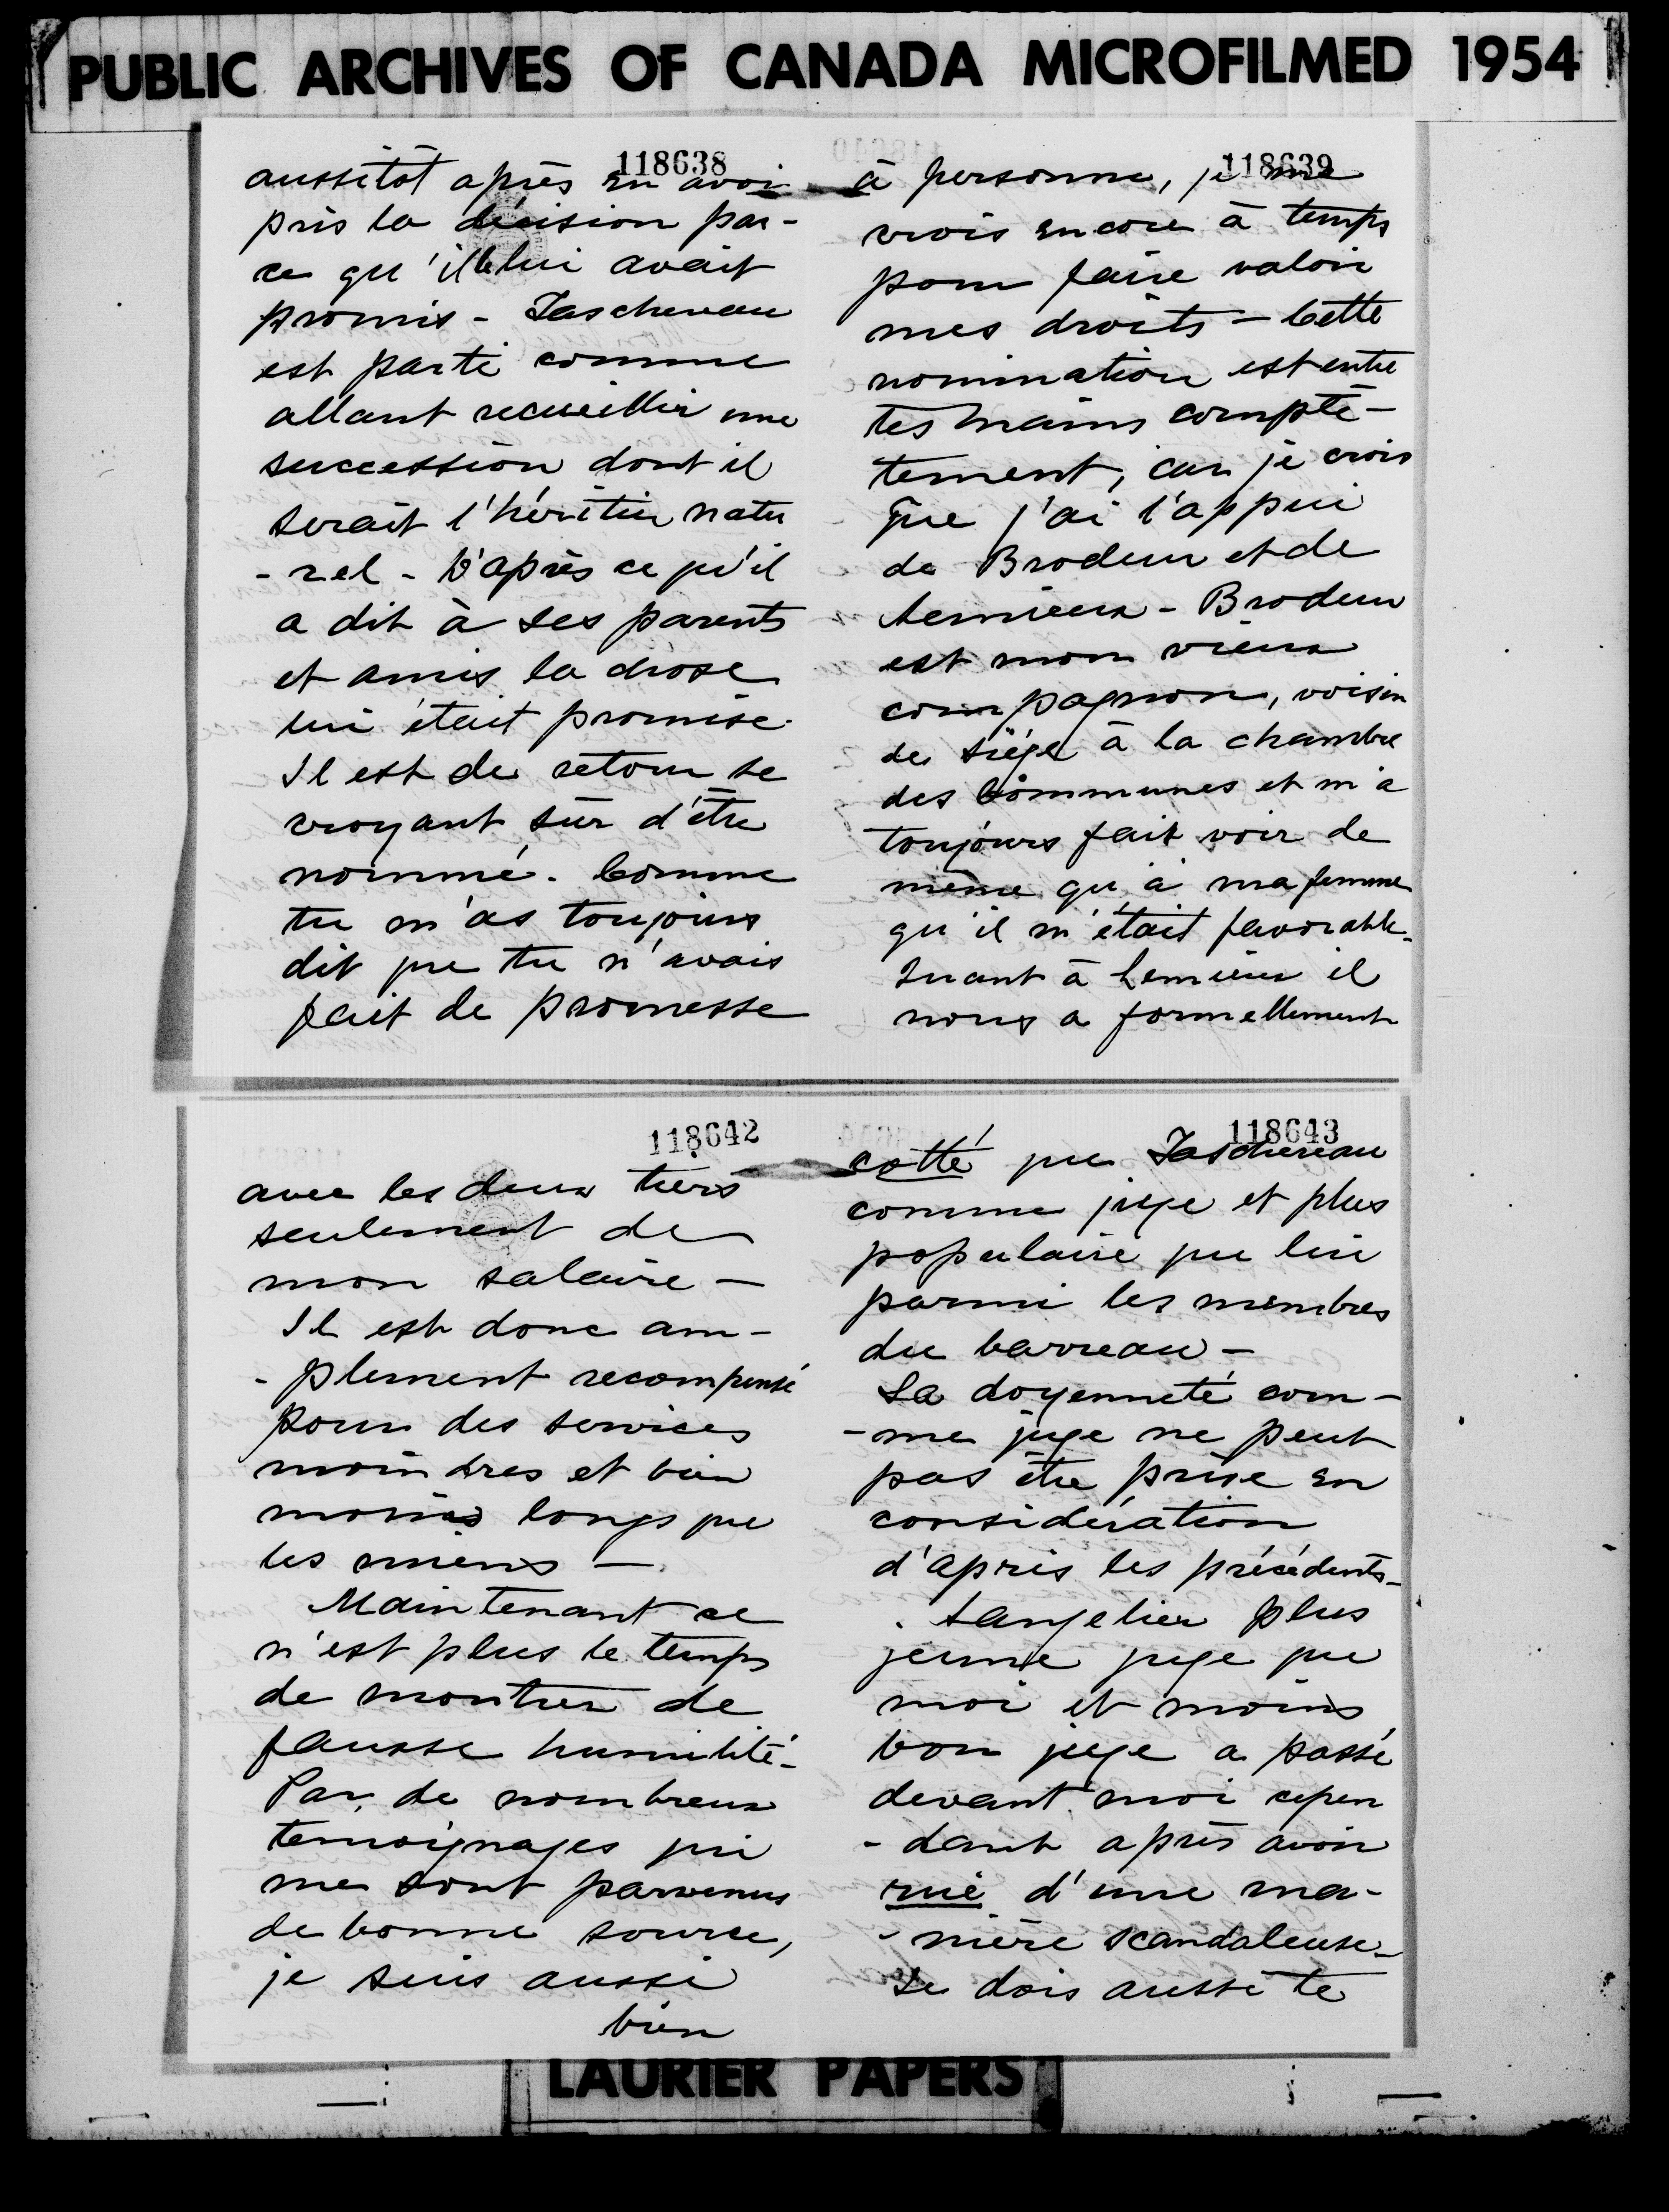 PUBLIC ARCHIVES OF CANADA MICROFILMED 1954
118638
aussitôt après en avoir
pris la décision par-
ce qu'il le lui avait
promis - Taschereau
est parti comme
allant recueillir une
succession dont il
serait l'héritier natu
- rel - D'après ce qu'il
a dit à ses parents
et amis la chose
lui était promise.
Il est de retour se
croyant sûr d'être
nommé. Comme
tu m'as toujours
dit que tu n'avais
fait de promesse
118639
à personne, je me
crois encore à temps
pour faire valoir
mes droits - Cette
nomination est entre
tes mains complè-
tement, car je crois
que j'ai l'appui
de Brodeur et de
Lemieux - Brodeur
est mon vieux
compagnon, voisin
de siége à la chambre
des Communes et m'a
toujours fait voir de
même qu'à ma femme
qu'il m'était favorable -
Quant à Lemieux il
nous a formellement
118642
avec les deux tiers
seulement de
mon salaire -
Il est donc am-
- plement recompensé
pour des services
moindres et bien
moins longs que
les miens -
Maintenant ce
n'est plus le temps
de montrer de
fausse humilité -
Par de nombreux
temoignages qui
me sont parvenus
de bonne source,
je suis aussi
bien
118643
cotté que Taschereau
comme juge et plus
populaire que lui
parmi les membres
du barreau -
La doyenneté com-
- me juge ne peut
pas être prise en
considération
d'après les précédents -
Langelier plus
jeune juge que
moi et moins
bon juge a passé
devant moi cepen
- dant après avoir
rué d'une ma-
- nière scandaleuse -
Je dois aussi te
LAURIER PAPERS